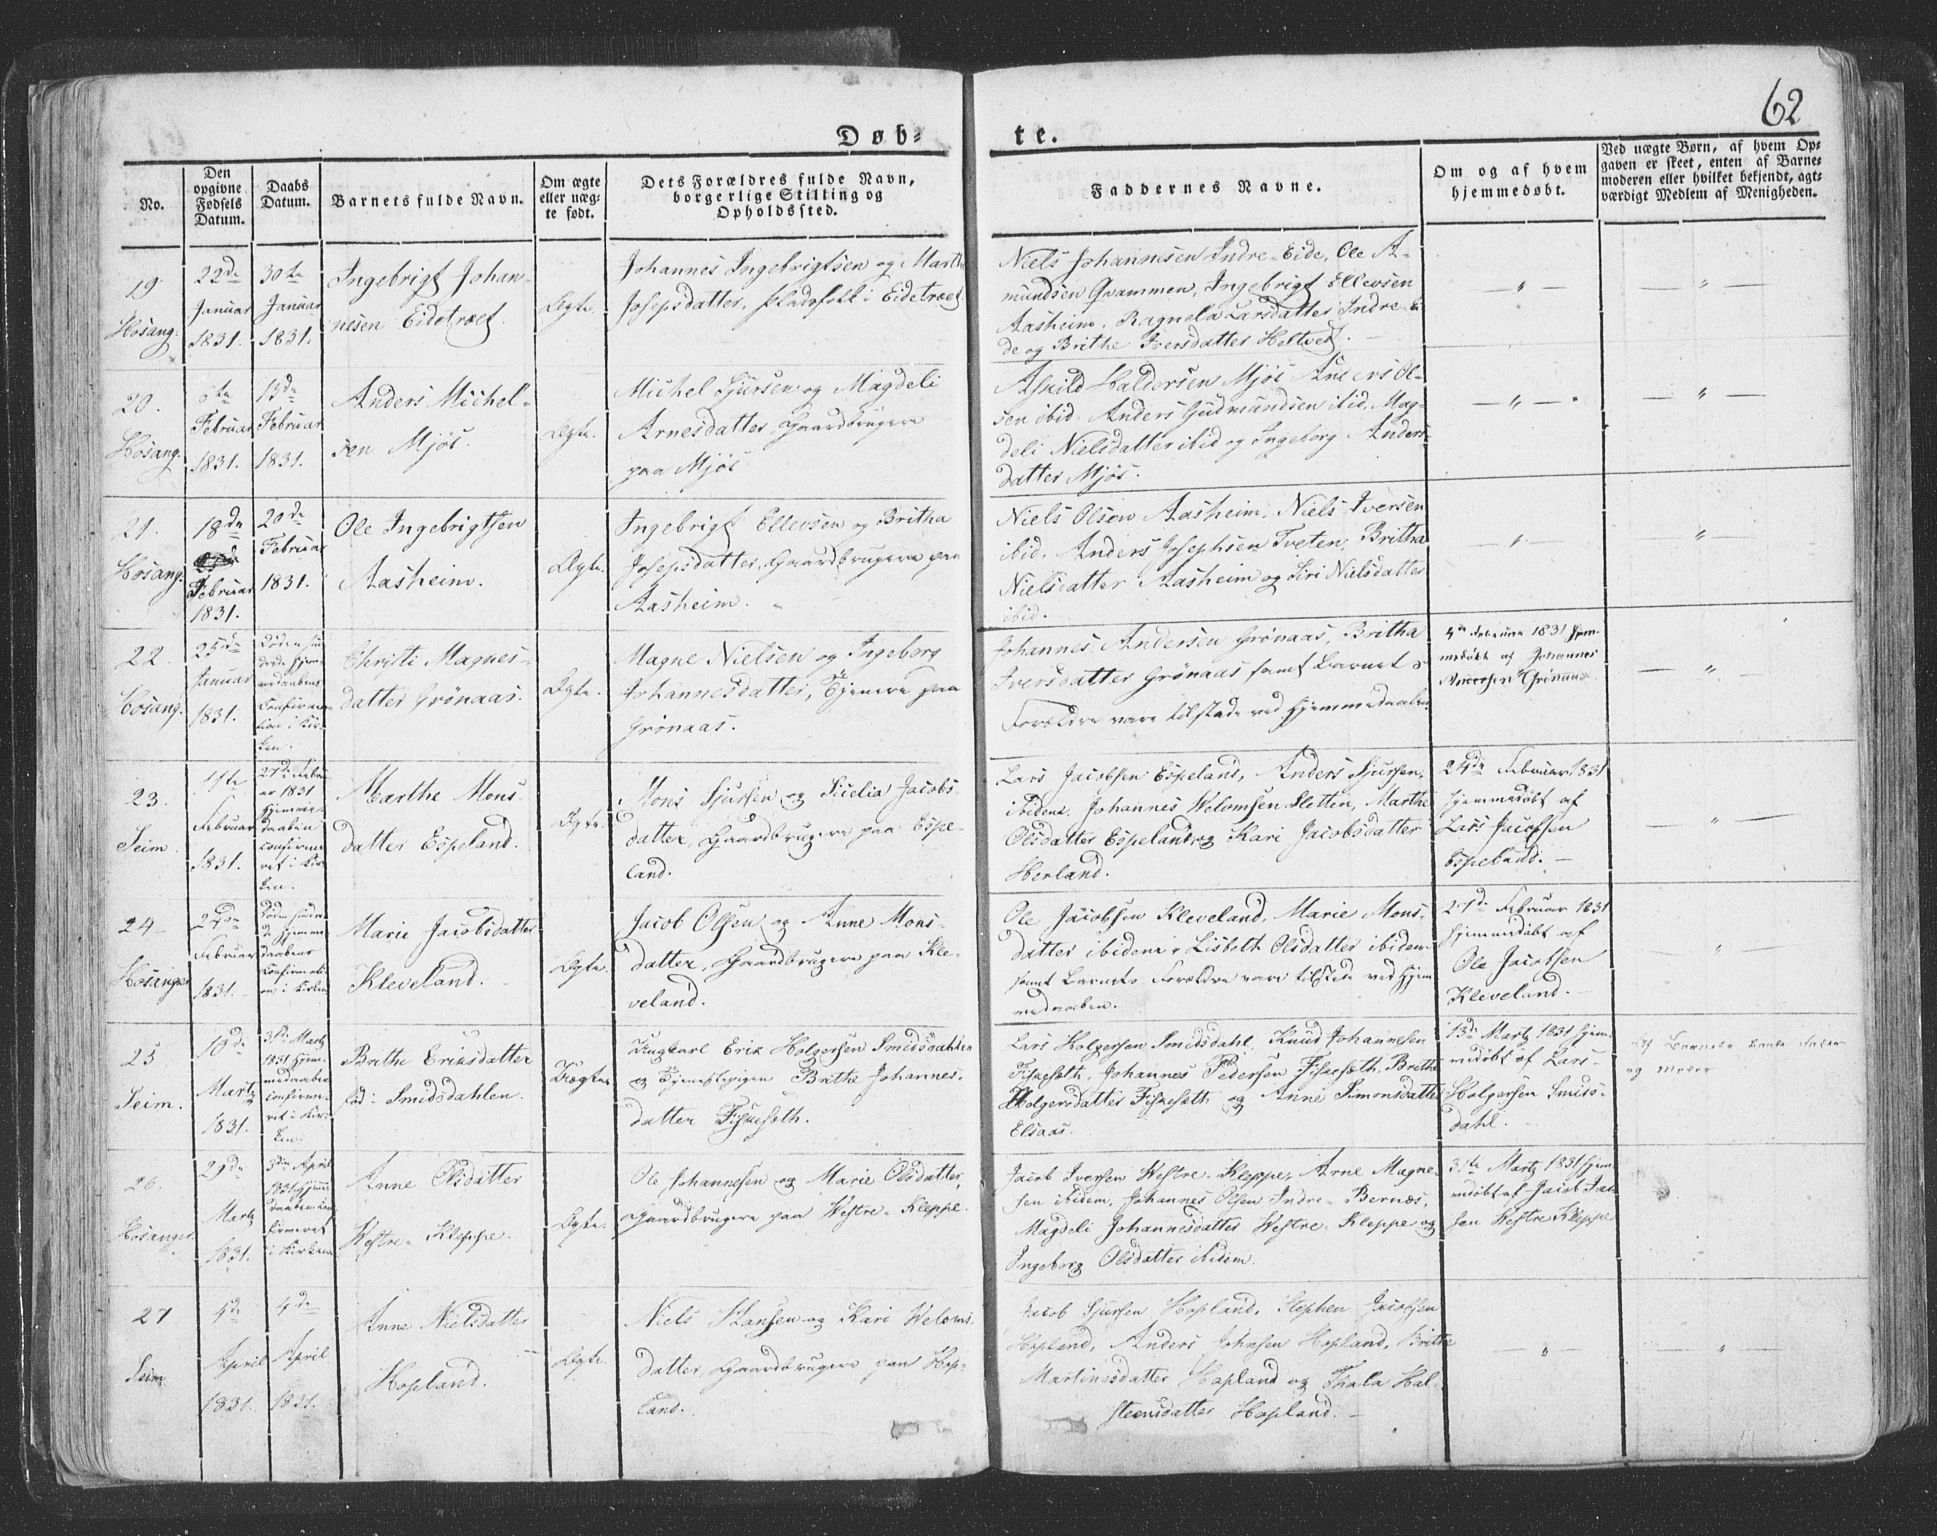 62
Døb-
te.
No.
Den opgivne Fødsels Datum.
Daabs Datum.
Barnets fulde Navn.
Om ægte eller uægte født.
Dets Forældres fulde Navn, borgerlige Stilling og Opholdssted.
Faddernes Navne.
Om og af hvem hjemmedøbt.
Ved uægte Børn, af hvem Opgaven er skeet, enten af Barnemoderen eller hvilket bekjendt, agtværdigt Medlem af Menigheden.
19
Hosang.
22de
Januar
1831.
30te
Januar
1831.
Ingebrigt Johan-
nesen Eidetræet.
Ægte.
Johannes Ingebrigtsen og Marth
Josepsdatter, Pladsfolk i Eidetræet
Niels Johannesen Indre-Eide, Ole A-
mundsen Qvammen, Ingebrigt Ellevsen
Aasheim. Ragnela Larsdatter Indre-E
de og Brithe Iversdatter Heltvet.
20.
Hosang.
6te
Februar
1831.
13de
Februar
1831.
Anders Michel-
sen Mjøs.
Ægte.
Michel Sjursen og Magdeli
Arnesdatter, Gaardbrugere
paa Mjøs
Askild Haldorsen Mjøs Anders Ol-
sen ibid. Anders Gudmundsen ibid, Mag-
deli Nielsdatter ibid og Ingeborg Anders-
datter Mjøs.
21.
Hosang.
18de
Februar
1831.
20de
Februar
1831.
Ole Ingebrigtsen
Aasheim.
Ægte.
Ingebrigt Ellevsen og Britha
Josepsdatter, Gaardbrugere paa
Aasheim.
Niels Olson Aasheim. Niels Iversen
ibid. Anders Josephsen Tveten, Britha
Nielsdatter Aasheim og Siri Nielsdatter
ibid.
22.
Hosang.
25de
Januar
1831.
Christi Magnes-
datter Grønaas.
Ægte.
Magne Nielsen og Ingeborg
Johannesdatter, Tjenere paa
Grønaas.
Johannes Andersen Grønaas, Britha
Iversdatter Grønaas samt Barnets
Forældre vare tilstæde ved Hjemmedaaben
Februar 1831 Hjem-
medøbt af Johannes
Andersen Grønaas
23.
Seim.
Februar
1831.
27de Febru
ar 1831
Hjemme-
daaben
confirme
ret i Kir
ken.
Marthe Mons-
datter Espeland.
Ægte.
Mons Sjursen og Sicelia Jacobs-
datter, Gaardbrugere paa Espe-
land.
Lars Jacobsen Espeland, Anders Sjursen,
ibidem, Johannes Welomsen Sletten, Marthe
Olsdatter Espeland og Kari Jacobsdatter
Herland.
24de Februar 1831
Hjemmedøbt af
Lars Jacobsen
Espeland.
24
Hosanger
Februar
1831.
Marie Jacobsdatter
Kleveland.
Ægte.
Jacob Olsen og Anne Mons-
datter, Gaardbrugere paa Kle-
veland.
Ole Jacobsen Kleveland, Marie Mons-
datter ibidem, Lisbeth Olsdatter ibidem
samt Barnets Forældre vare tilstede ved Hjem
medaaben.
27de Februar 1831
Hjemmedøbt af
Ole Jacobsen
Kleveland.
25
Seim.
10de
Martz
1831.
31de Martz
1831 Hjem-
medaaben
confirme-
ret i Kir-
ken.
Brithe Eriksdatter
fød: Smidsdahlen.
Uægte
Ungkarl Erik Holgersen Smidsdahlen
og Tjenestepigen Brithe Johannes-
datter Fiskesæth.
Lars Holgersen Smidsdahl, Knud Johannesen
Fiskesæth, Johannes Pedersen Fiskesæth, Brithe
Holgersdatter Fiskesæth og Anne Simonsdatter
Elsaas.
13de Martz 1831 Hjem-
medøbt af Lars
Holgersen Smids-
dahl.
Af Barnets Fader
og Moder
26.
Hosanger.
29de
Martz
1831.
3die April
1831 Hjemme
daaben con
firmeret
i Kirken
Anne Olsdatter
Westre-Kleppe.
Ægte.
Ole Johannesen og Marie Olsdatter,
Gaardbrugere paa Westre-Kleppe.
Jacob Iversen Westre-Kleppe, Arne Magne-
sen ibidem, Johannes Olsen Indre-Bernæs,
Magdeli Johannesdatter Westre-Kleppe og
Ingeborg Olsdatter ibidem.
31te Martz 1831 Hjem-
medøbt af Jacob Iver
sen Westre Kleppe
27
Seim
4de
April
1831.
4de
April
1831.
Anne Nielsdatter
Hopland.
Ægte.
Niels Hansen og Kari Weloms-
datter, Gaardbrugere paa Hop-
land.
Jacob Sjursen Hopland, Stephen Jacobsen
Hopland, Anders Johnsen Hopland, Brithe
Martinsdatter Hopland og Thala Hal-
steensdatter Hopland.